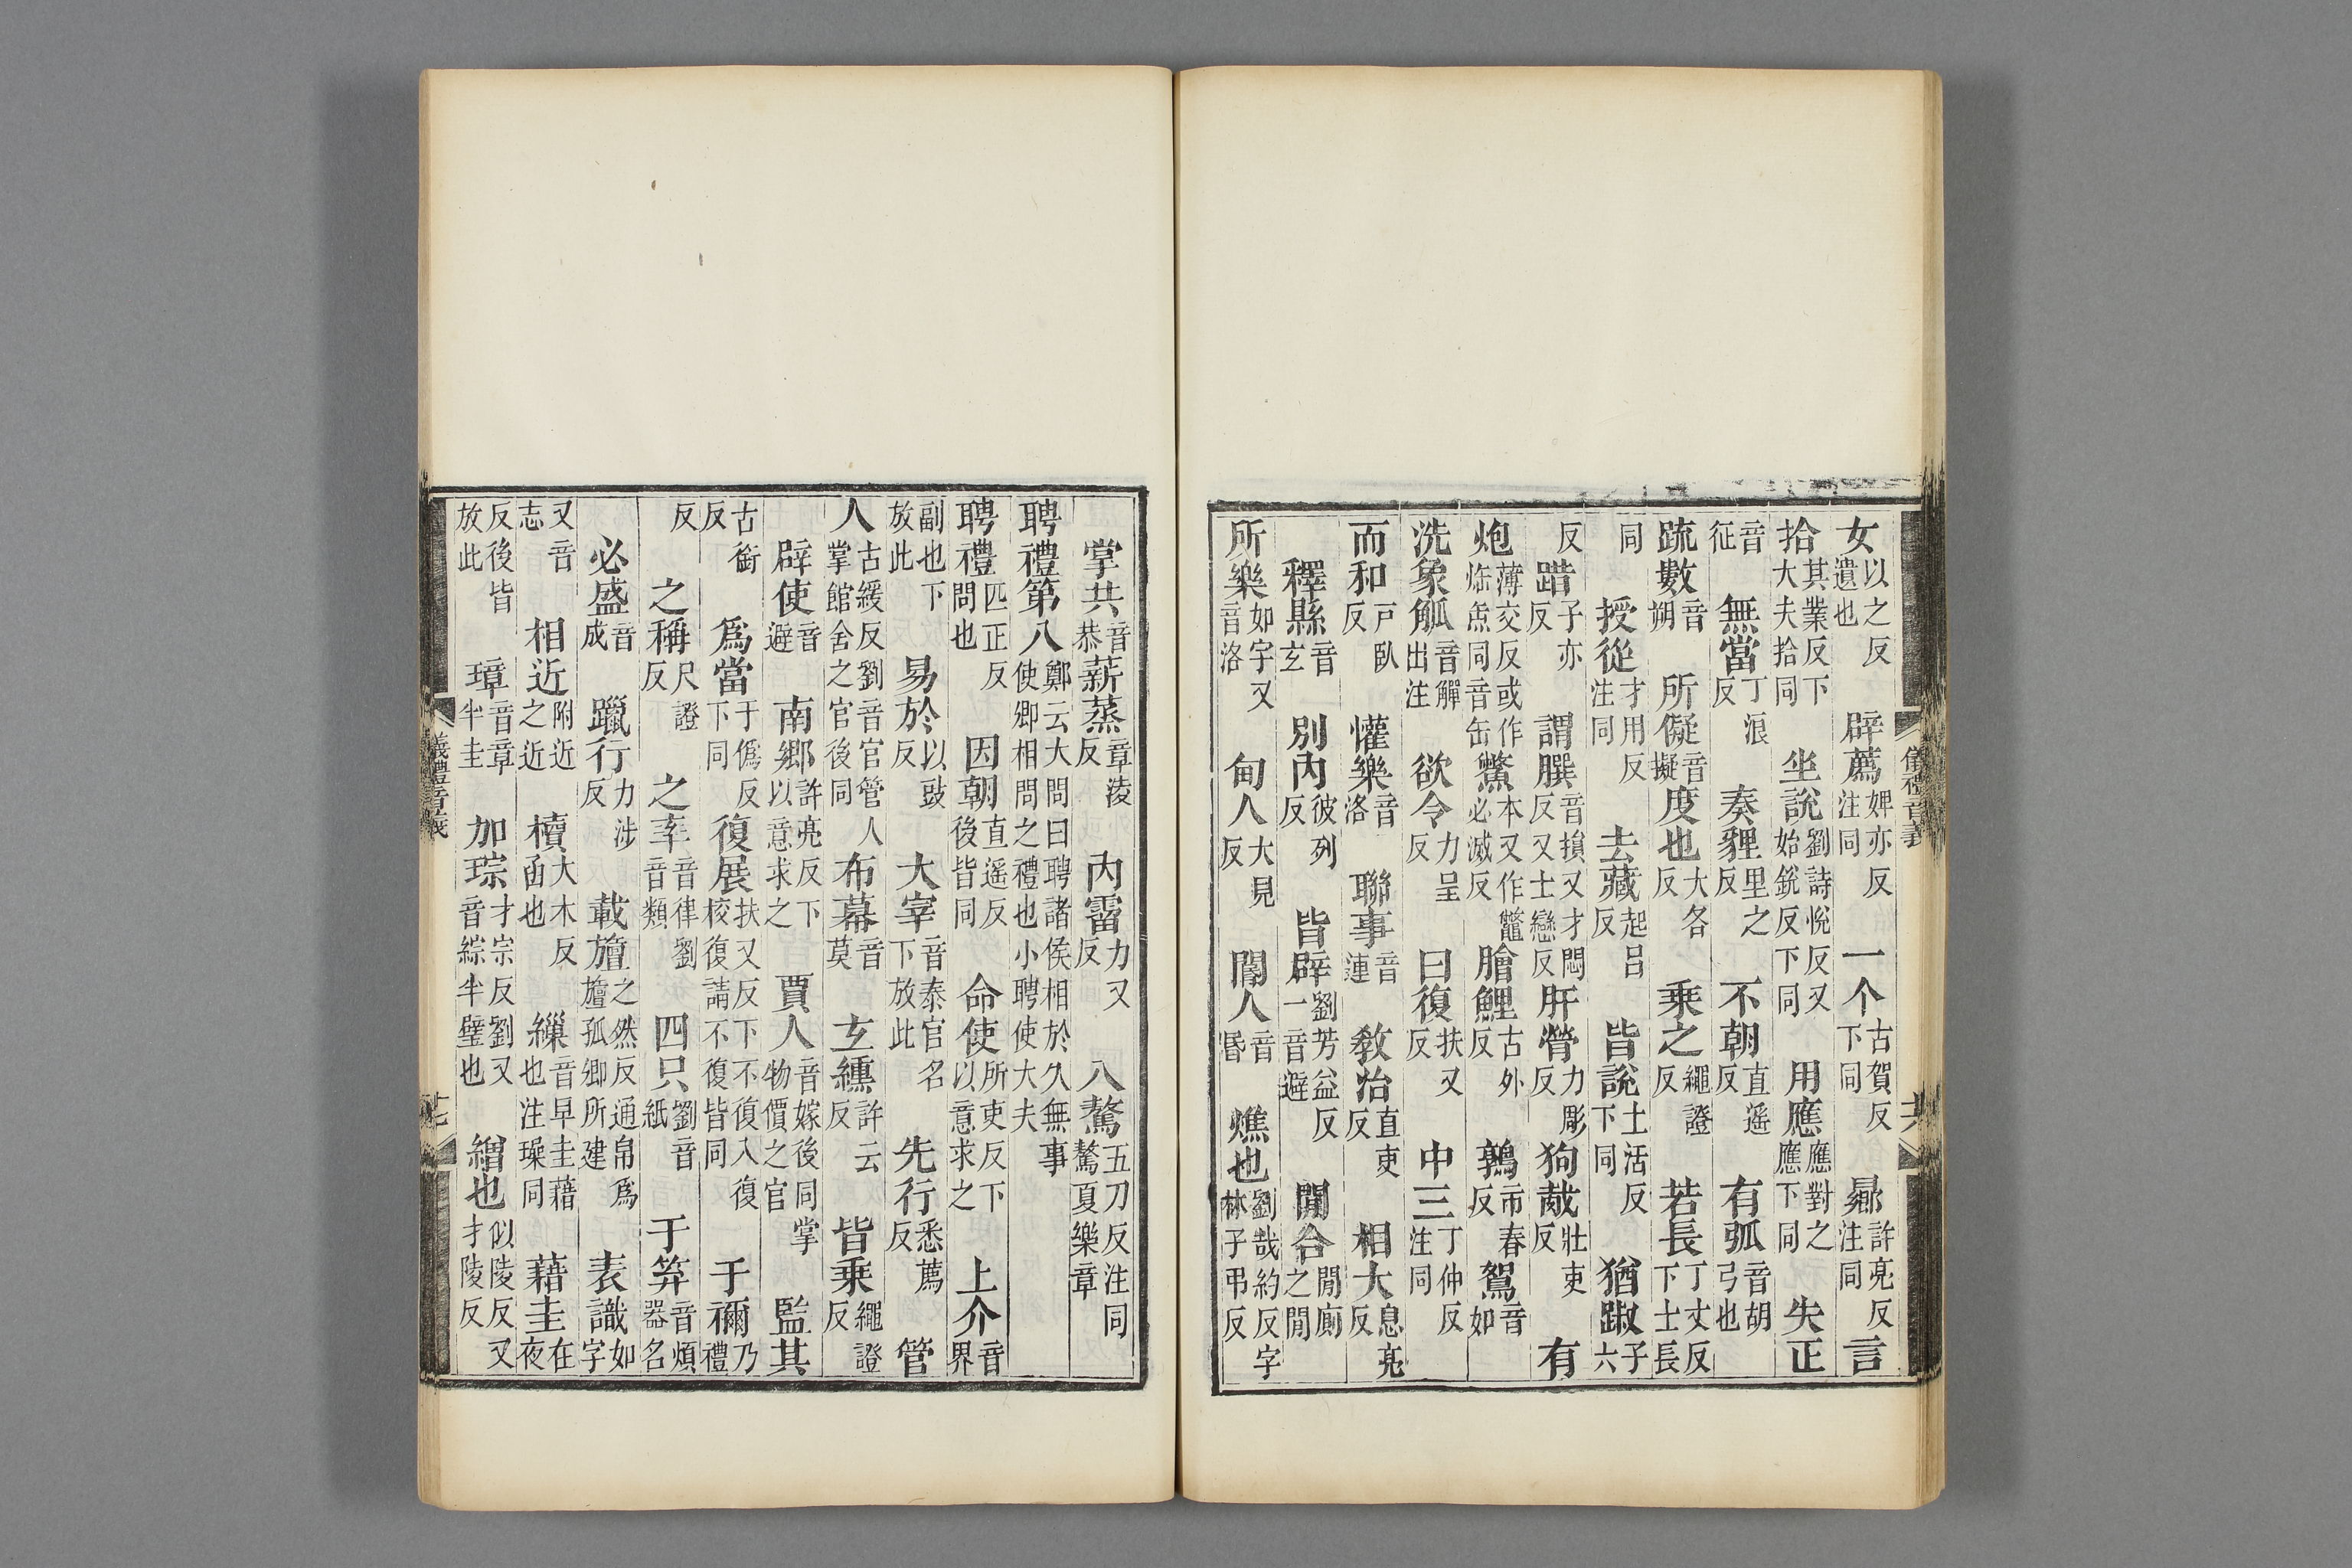 女以之反遺也 辟薦婢亦反注同 一个古賀反下同 曏許亮反注同 言
拾其業反下大夫拾同 坐說劉詩悅反又始銳反下同 用應應對之應下同 失正
音征 無當丁浪反 奏貍里之反 不朝直遙反 有弧音胡弓也
疏數音朔 所儗音擬 度也大各反 乘之繩證反 若長丁丈反下士長
同 授從才用反注同 去藏起呂反 皆說土活反下同 猶踧子六
反 踖子亦反 謂音損又才悶反又士戀反 肝膋力彫反 狗胾壯吏反 有
炮薄交反或作炰同音缶 鱉本又作鼈必滅反 膾鯉古外反 鶉市春反 鴽音如
洗象觚音觶出注 欲令力呈反 曰復扶又反 中三丁仲反注同
而和戶臥反 懽樂音洛 聯事音連 敎治直吏反 相大息亮反
釋縣音玄 別內彼列反 皆辟劉芳益反一音避 閒合閒廁之閒
所樂如字又音洛 甸人大見反 閽人音昏 燋也劉哉約反字林子弔反
儀禮音義
掌共音恭 薪蒸章淩反 內霤力又反 八驁五刀反注同驁夏樂章
聘禮第八鄭云大問曰聘諸侯相於久無事使卿相問之禮也小聘使大夫
聘禮匹正反問也 因朝直遙反後皆同 命使所吏反下以意求之 上介音界
副也下放此 易於以豉反 大宰音泰官名下放此 先行悉薦反 管
人古緩反劉音官管人掌館舍之官後同 布幕音莫 玄纁許云反 皆乘繩證反
辟使音避 南鄉許亮反下以意求之 賈人音嫁後同掌物價之官 監其
古銜反 爲當于僞反下同 復展扶又反下不復入復校復請不復皆同 于禰乃禮
反 之稱尺證反 之率音律劉音類 四只劉音紙 于筭音煩器名
必盛音成 躐行力涉反 載旜之然反通帛爲旜孤卿所建 表識如字
又音志 相近附近之近 櫝大木反函也 繅音早圭藉也注璪同 藉圭在夜
反後皆放此 璋音章半圭 加琮才宗反劉又音綜半璧也 繒也似陵反又才陵反
儀禮音義 十七